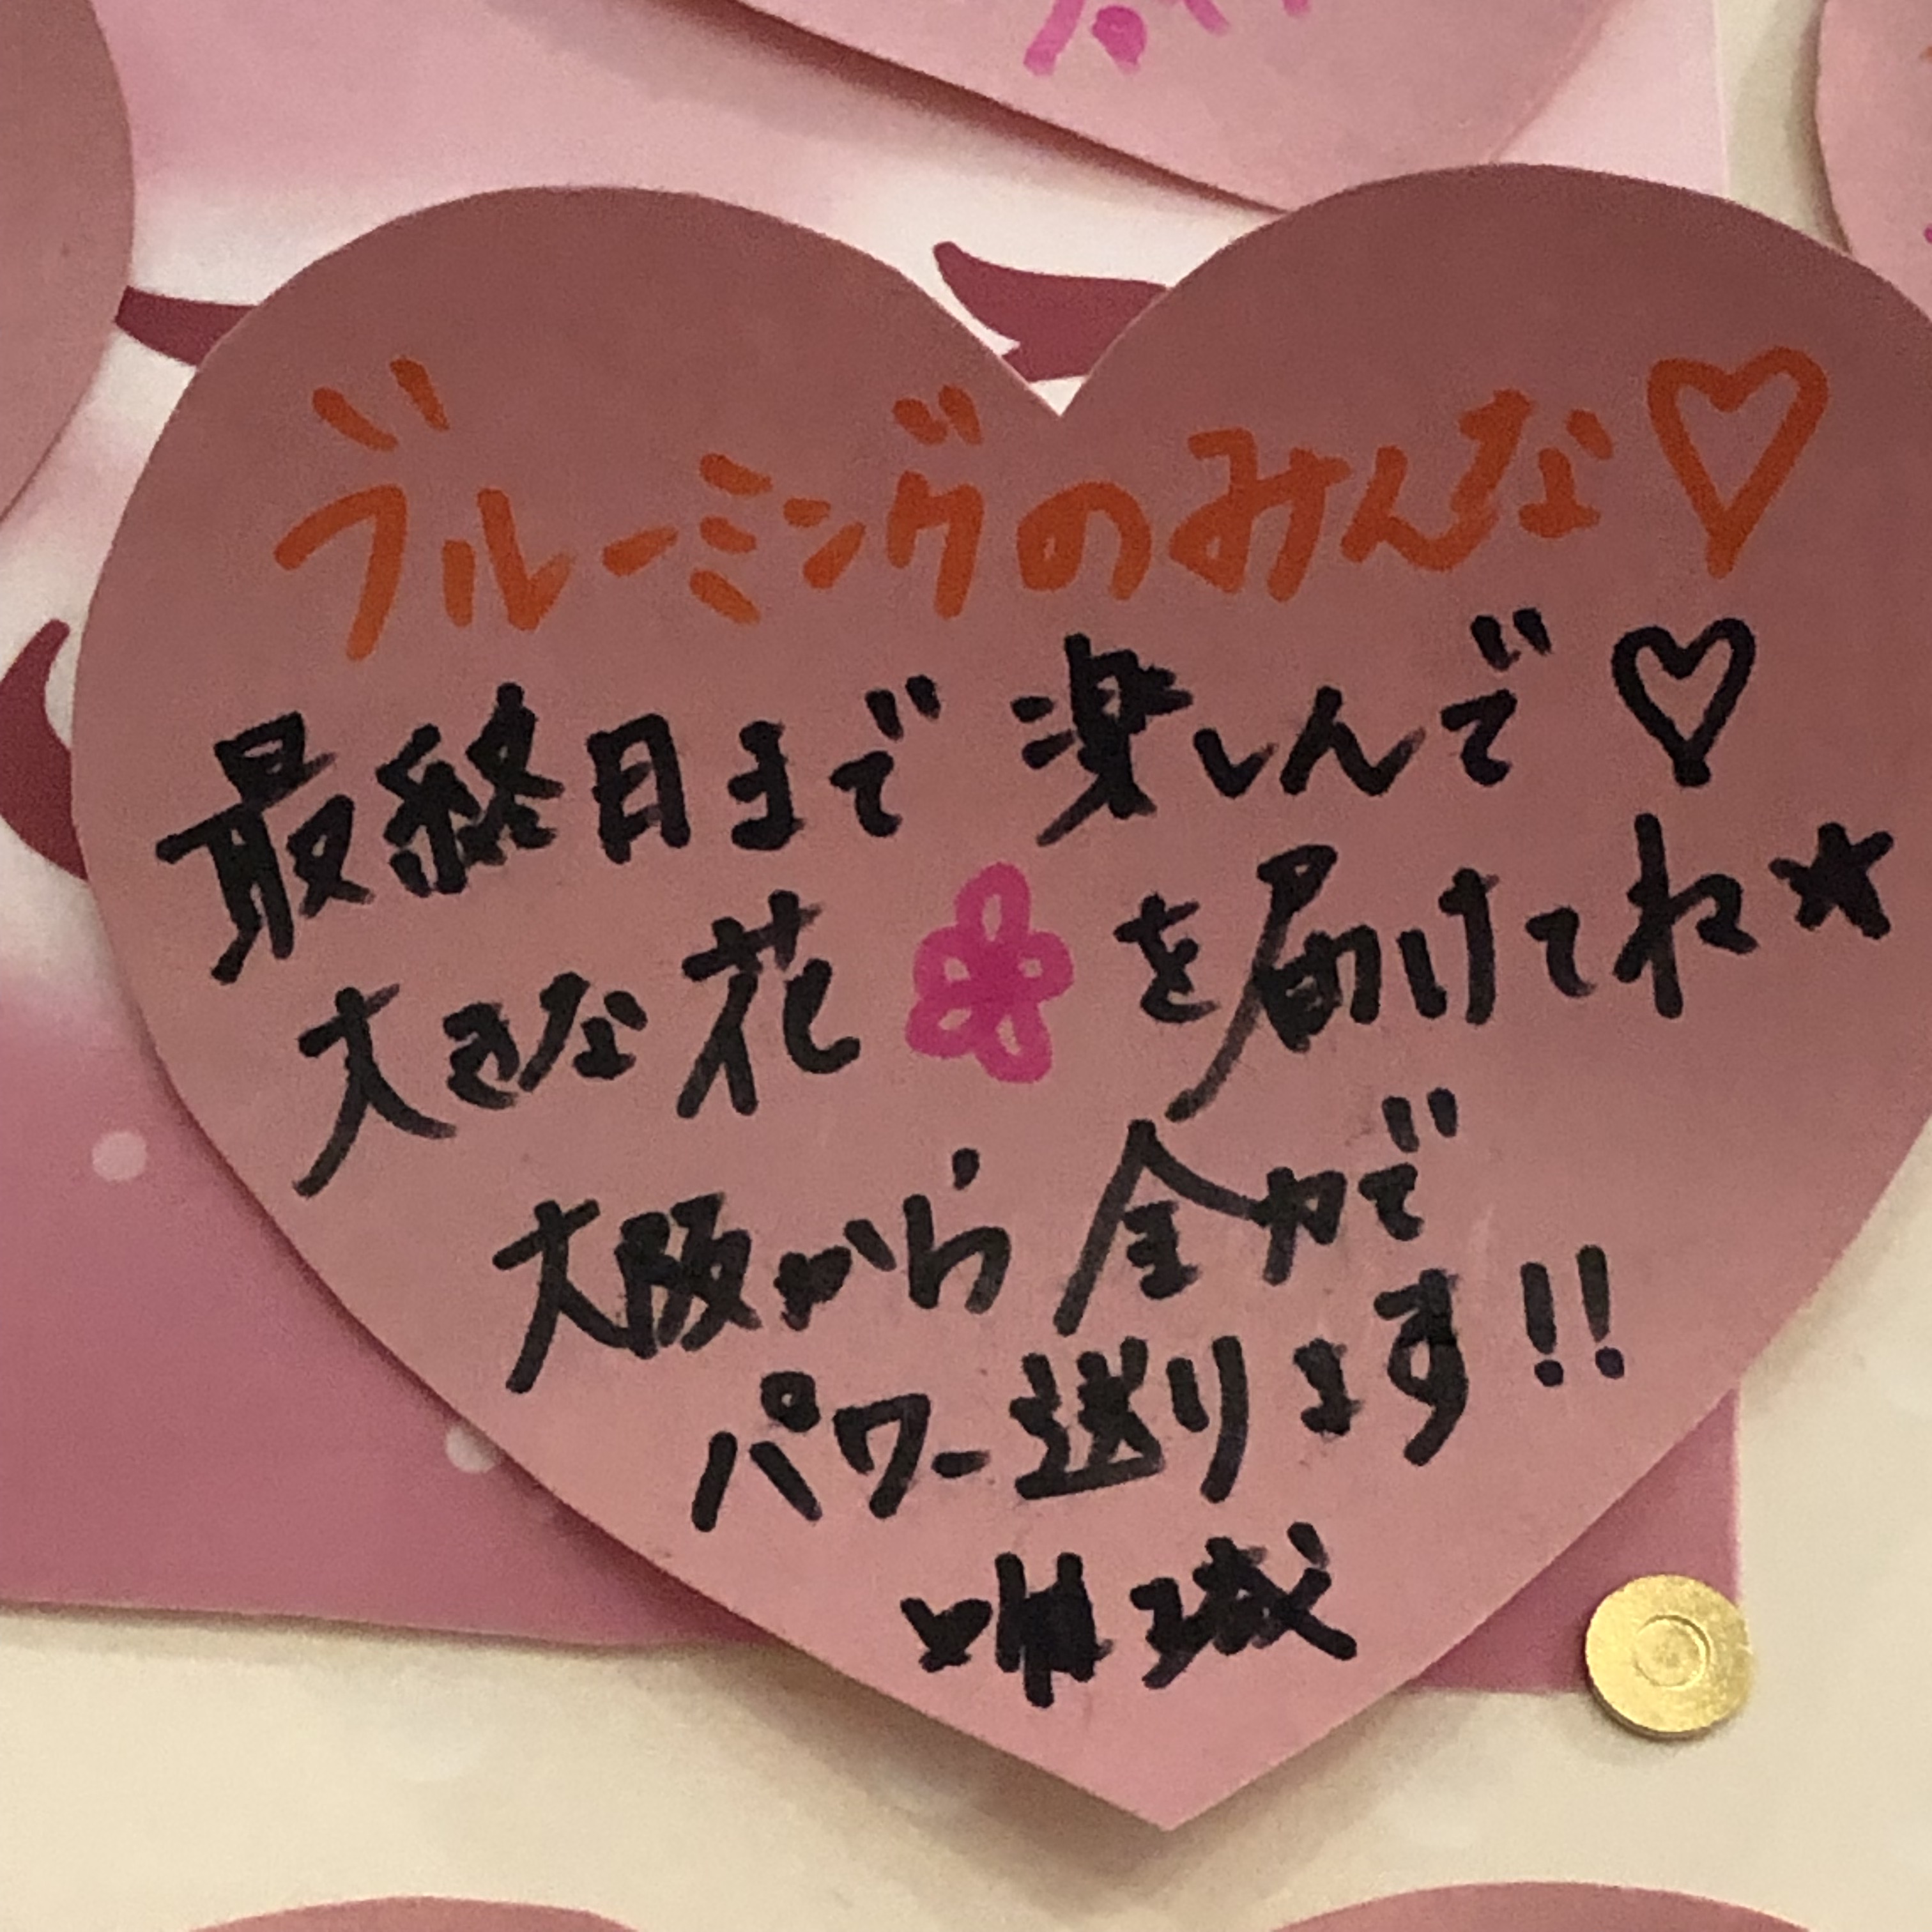 ブルーミングのみんな♡
最終日まで楽しんで♡
大きな花を届けてね★
大阪から全力で
パワー送ります!!
唯城